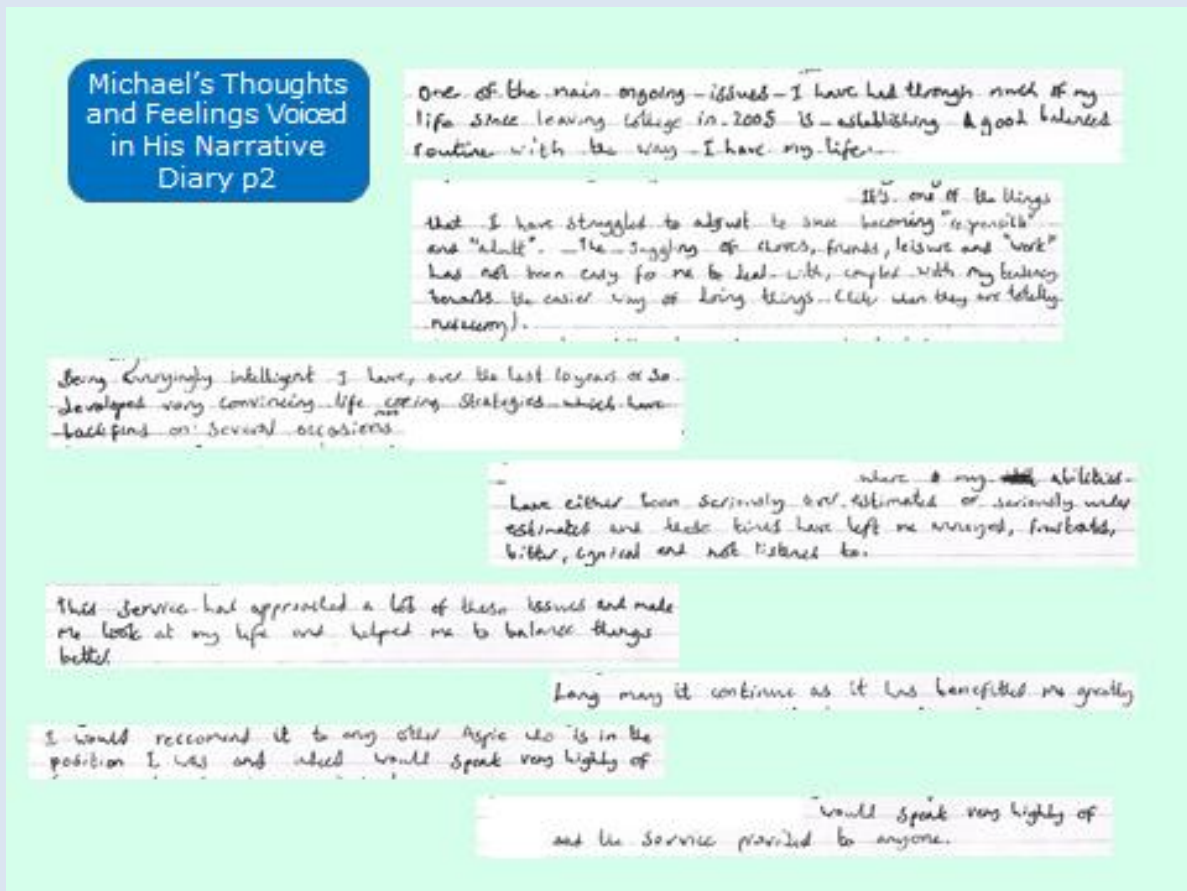 Michael's Thoughts
and Feelings Voiced
in His Narrative
Diary p2
One of the main ongoing issues I have had through much of my
life since leaving college in 2005 is establishing a good balanced
routine with the way I have my life.
It's one of the things
that I have struggled to adjust to since becoming "responsible"
and "adult". The juggling of chores, friends, leisure and "work"
has not been easy for me to deal with, coupled with my tendency
towards the easier way of doing things (like when they are totally
necessary).
Being annoyingly intelligent I have, over the last 10 years or so
developed very convincing life coping strategies which have
backfired on several occasions
where my abilities
have either been seriously over estimated or seriously under
estimated and these times have left me annoyed, frustrated,
bitter, cynical and not listened to.
This service has approached a lot of these issues and made
me look at my life and helped me to balance things
better.
Long may it continue as it has benefitted me greatly
I would reccomend it to any other Aspie who is in the
position I was and indeed would speak very highly of
would speak very highly of
and the service provided to anyone.